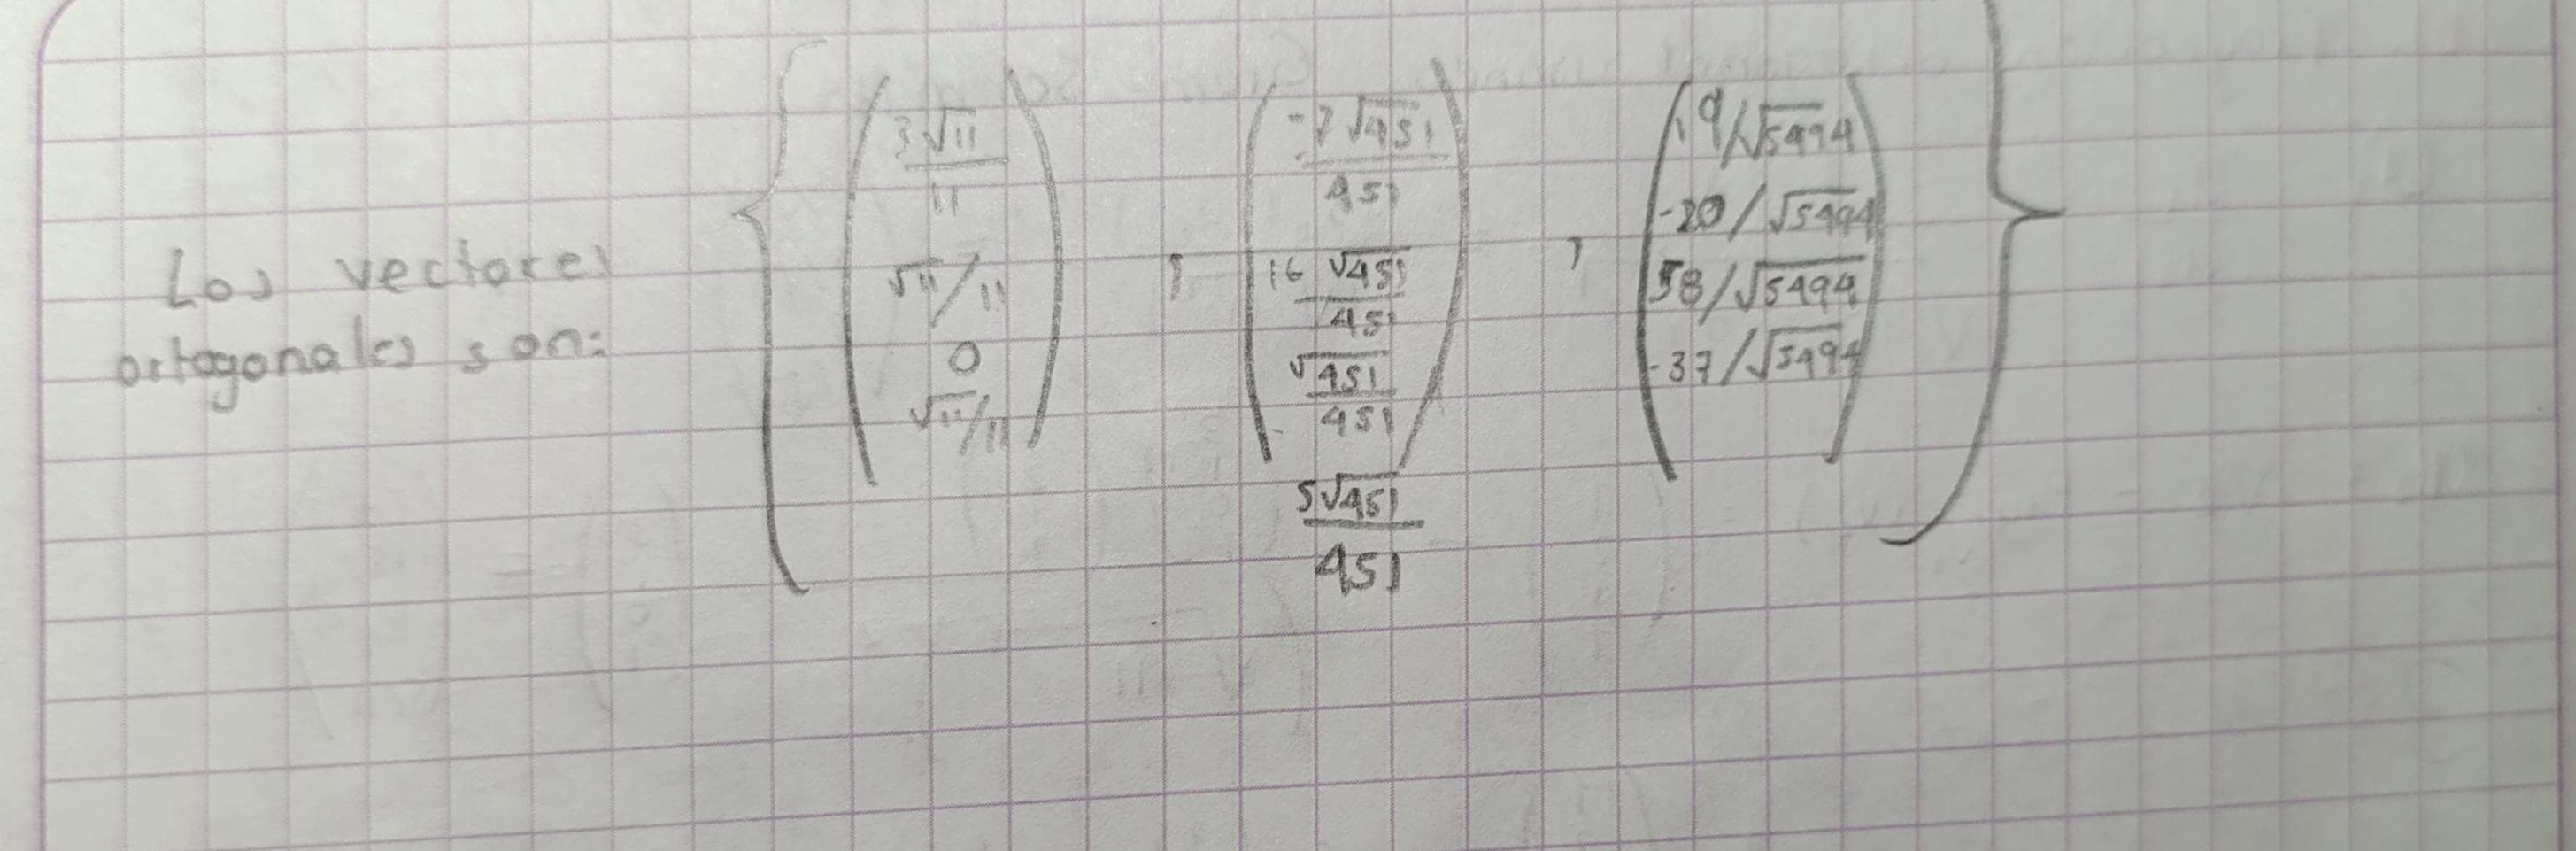 Los vectores
ortogonales son:
{ ( 3√11/11
√11/11
0
√11/11 ) ,
( -7√451/451
16√451/451
√451/451
5√451/451 ) ,
( 19/√5494
-20/√5494
58/√5494
-37/√5494 ) }